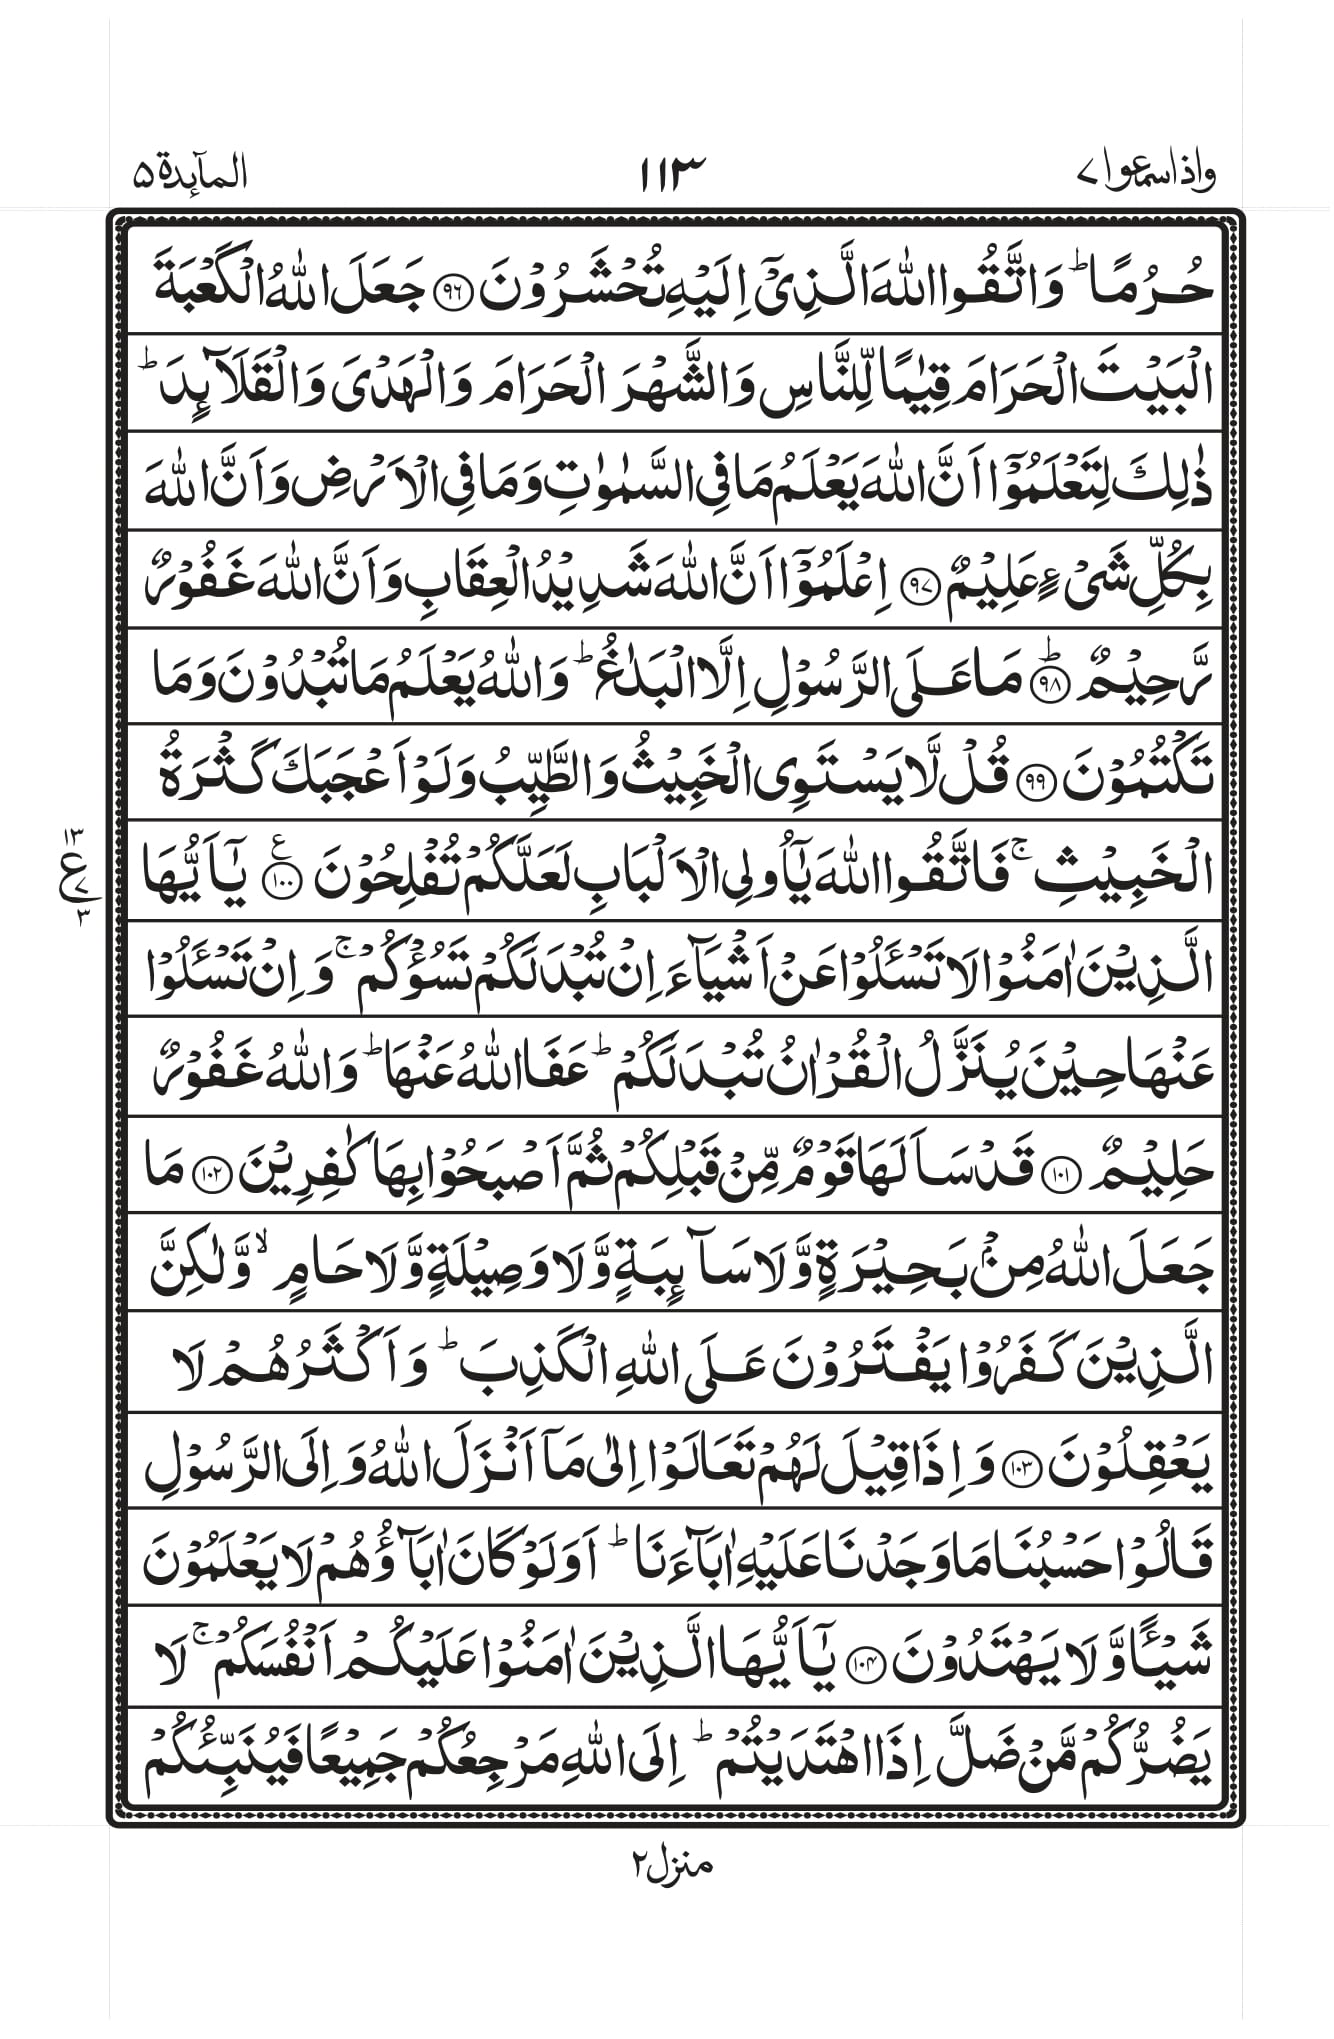 واذاسمعوا ٧
١١٣
المآئدة ٥
حُرُمًا ؕ وَاتَّقُوا اللّٰهَ الَّذِیْۤ اِلَیْهِ تُحْشَرُوْنَ ﴿۹۶﴾ جَعَلَ اللّٰهُ الْكَعْبَةَ
الْبَیْتَ الْحَرَامَ قِیٰمًا لِّلنَّاسِ وَالشَّهْرَ الْحَرَامَ وَالْهَدْیَ وَالْقَلَآىِٕدَ ؕ
ذٰلِكَ لِتَعْلَمُوْۤا اَنَّ اللّٰهَ یَعْلَمُ مَا فِی السَّمٰوٰتِ وَمَا فِی الْاَرْضِ وَاَنَّ اللّٰهَ
بِكُلِّ شَیْءٍ عَلِیْمٌ ﴿۹۷﴾ اِعْلَمُوْۤا اَنَّ اللّٰهَ شَدِیْدُ الْعِقَابِ وَاَنَّ اللّٰهَ غَفُوْرٌ
رَّحِیْمٌ ؕ﴿۹۸﴾ مَا عَلَی الرَّسُوْلِ اِلَّا الْبَلٰغُ ؕ وَاللّٰهُ یَعْلَمُ مَا تُبْدُوْنَ وَمَا
تَكْتُمُوْنَ ﴿۹۹﴾ قُلْ لَّا یَسْتَوِی الْخَبِیْثُ وَالطَّیِّبُ وَلَوْ اَعْجَبَكَ كَثْرَةُ
الْخَبِیْثِ ۚ فَاتَّقُوا اللّٰهَ یٰۤاُولِی الْاَلْبَابِ لَعَلَّكُمْ تُفْلِحُوْنَ ﴿۱۰۰﴾ ع یٰۤاَیُّهَا
١٣
ع
٧
٣
الَّذِیْنَ اٰمَنُوْا لَا تَسْـَٔلُوْا عَنْ اَشْیَآءَ اِنْ تُبْدَ لَكُمْ تَسُؤْكُمْ ۚ وَاِنْ تَسْـَٔلُوْا
عَنْهَا حِیْنَ یُنَزَّلُ الْقُرْاٰنُ تُبْدَ لَكُمْ ؕ عَفَا اللّٰهُ عَنْهَا ؕ وَاللّٰهُ غَفُوْرٌ
حَلِیْمٌ ﴿۱۰۱﴾ قَدْ سَاَلَهَا قَوْمٌ مِّنْ قَبْلِكُمْ ثُمَّ اَصْبَحُوْا بِهَا كٰفِرِیْنَ ﴿۱۰۲﴾ مَا
جَعَلَ اللّٰهُ مِنْۢ بَحِیْرَةٍ وَّلَا سَآىِٕبَةٍ وَّلَا وَصِیْلَةٍ وَّلَا حَامٍ ۙ وَّلٰكِنَّ
الَّذِیْنَ كَفَرُوْا یَفْتَرُوْنَ عَلَی اللّٰهِ الْكَذِبَ ؕ وَاَكْثَرُهُمْ لَا
یَعْقِلُوْنَ ﴿۱۰۳﴾ وَاِذَا قِیْلَ لَهُمْ تَعَالَوْا اِلٰی مَاۤ اَنْزَلَ اللّٰهُ وَاِلَی الرَّسُوْلِ
قَالُوْا حَسْبُنَا مَا وَجَدْنَا عَلَیْهِ اٰبَآءَنَا ؕ اَوَلَوْ كَانَ اٰبَآؤُهُمْ لَا یَعْلَمُوْنَ
شَیْـًٔا وَّلَا یَهْتَدُوْنَ ﴿۱۰۴﴾ یٰۤاَیُّهَا الَّذِیْنَ اٰمَنُوْا عَلَیْكُمْ اَنْفُسَكُمْ ۚ لَا
یَضُرُّكُمْ مَّنْ ضَلَّ اِذَا اهْتَدَیْتُمْ ؕ اِلَی اللّٰهِ مَرْجِعُكُمْ جَمِیْعًا فَیُنَبِّئُكُمْ
منزل ٢